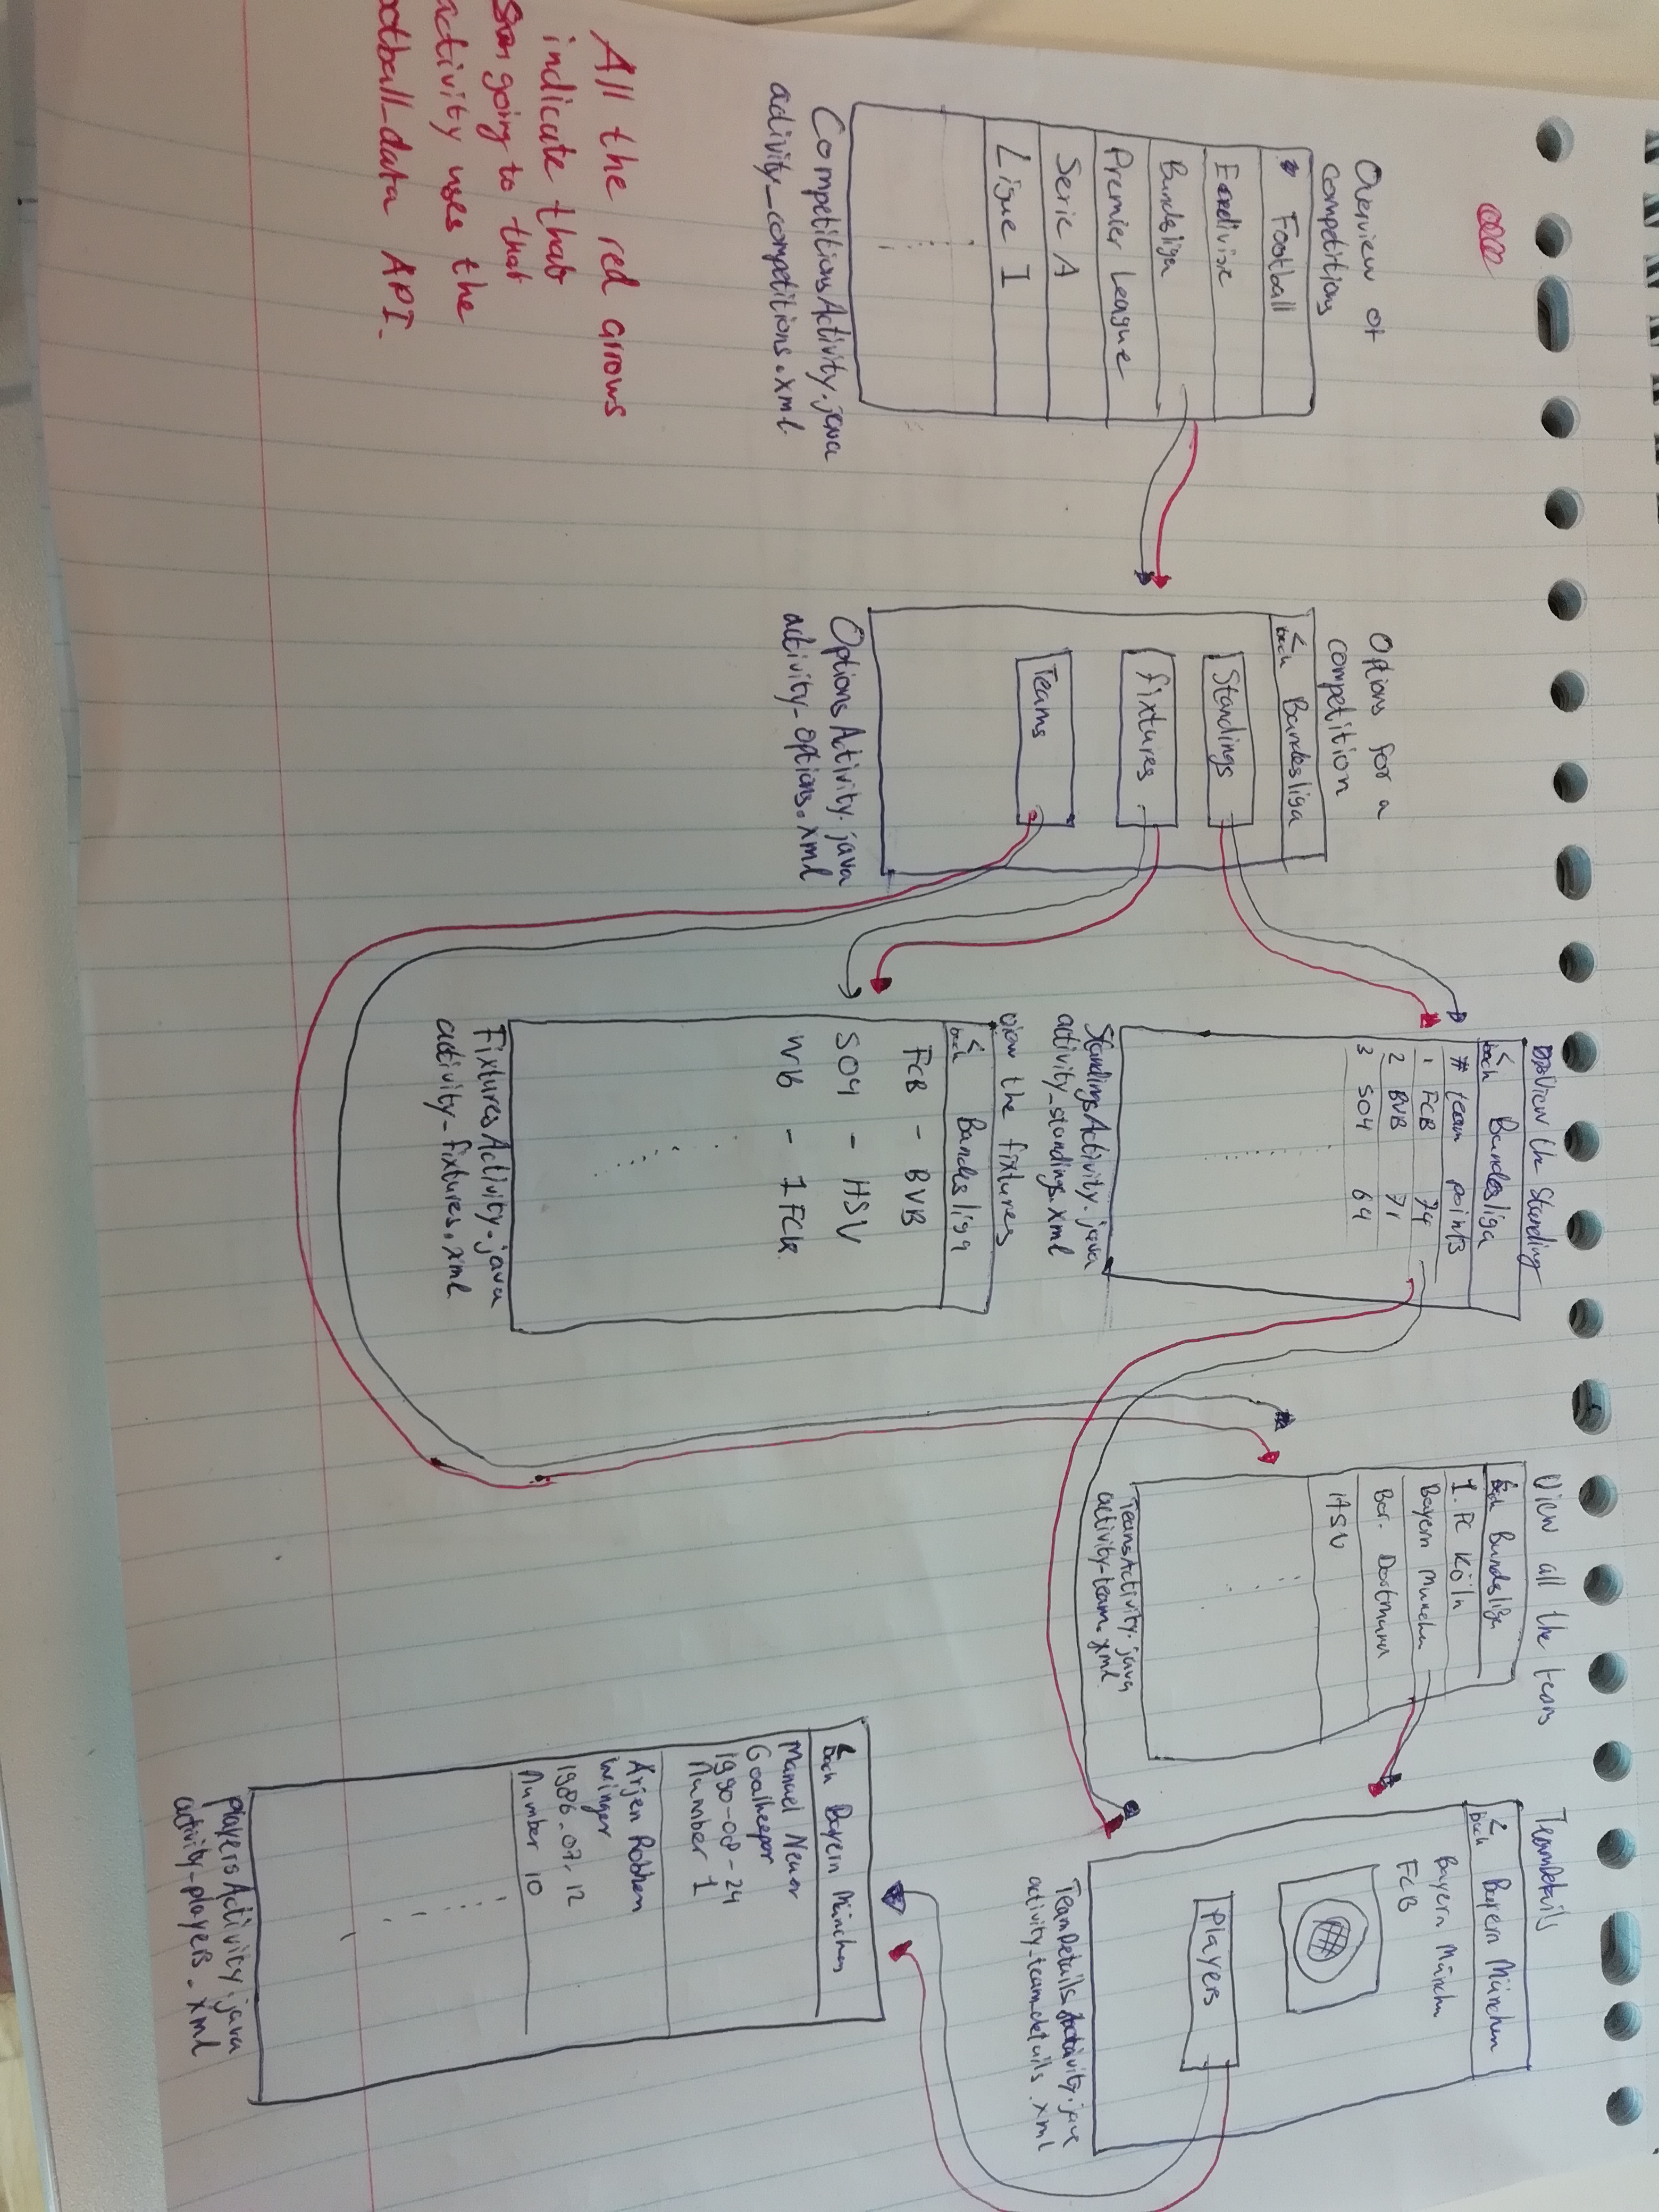 Overview of
competitions
Football
Eredivisie
Bundesliga
Premier League
Serie A
Ligue I
CompetitionsActivity.java
activity_competitions.xml
All the red arrows
indicate that
going to that
activity uses the
football_data API.
Options for a
competition
<
back Bundesliga
Standings
fixtures
Teams
OptionsActivity.java
activity_options.xml
View the Standing
<
back Bundesliga
# team points
1 FCB 74
2 BVB 71
3 S04 64
StandingsActivity.java
activity_standings.xml
View the fixtures
<
back Bundesliga
FCB - BVB
S04 - HSV
WB - 1FCK
FixturesActivity.java
activity_fixtures.xml
View all the teams
<
back Bundesliga
1. FC Köln
Bayern Munchen
Bor. Dortmund
HSV
TeamsActivity.java
activity_team.xml
TeamDetails
<
back Bayern München
Bayern München
FCB
Players
TeamDetailsActivity.java
activity_team_details.xml
<
back Bayern München
Manuel Neuer
Goalkeeper
1990-08-24
Number 1
Arjen Robben
winger
1986-07-12
Number 10
playersActivity.java
activity_players.xml